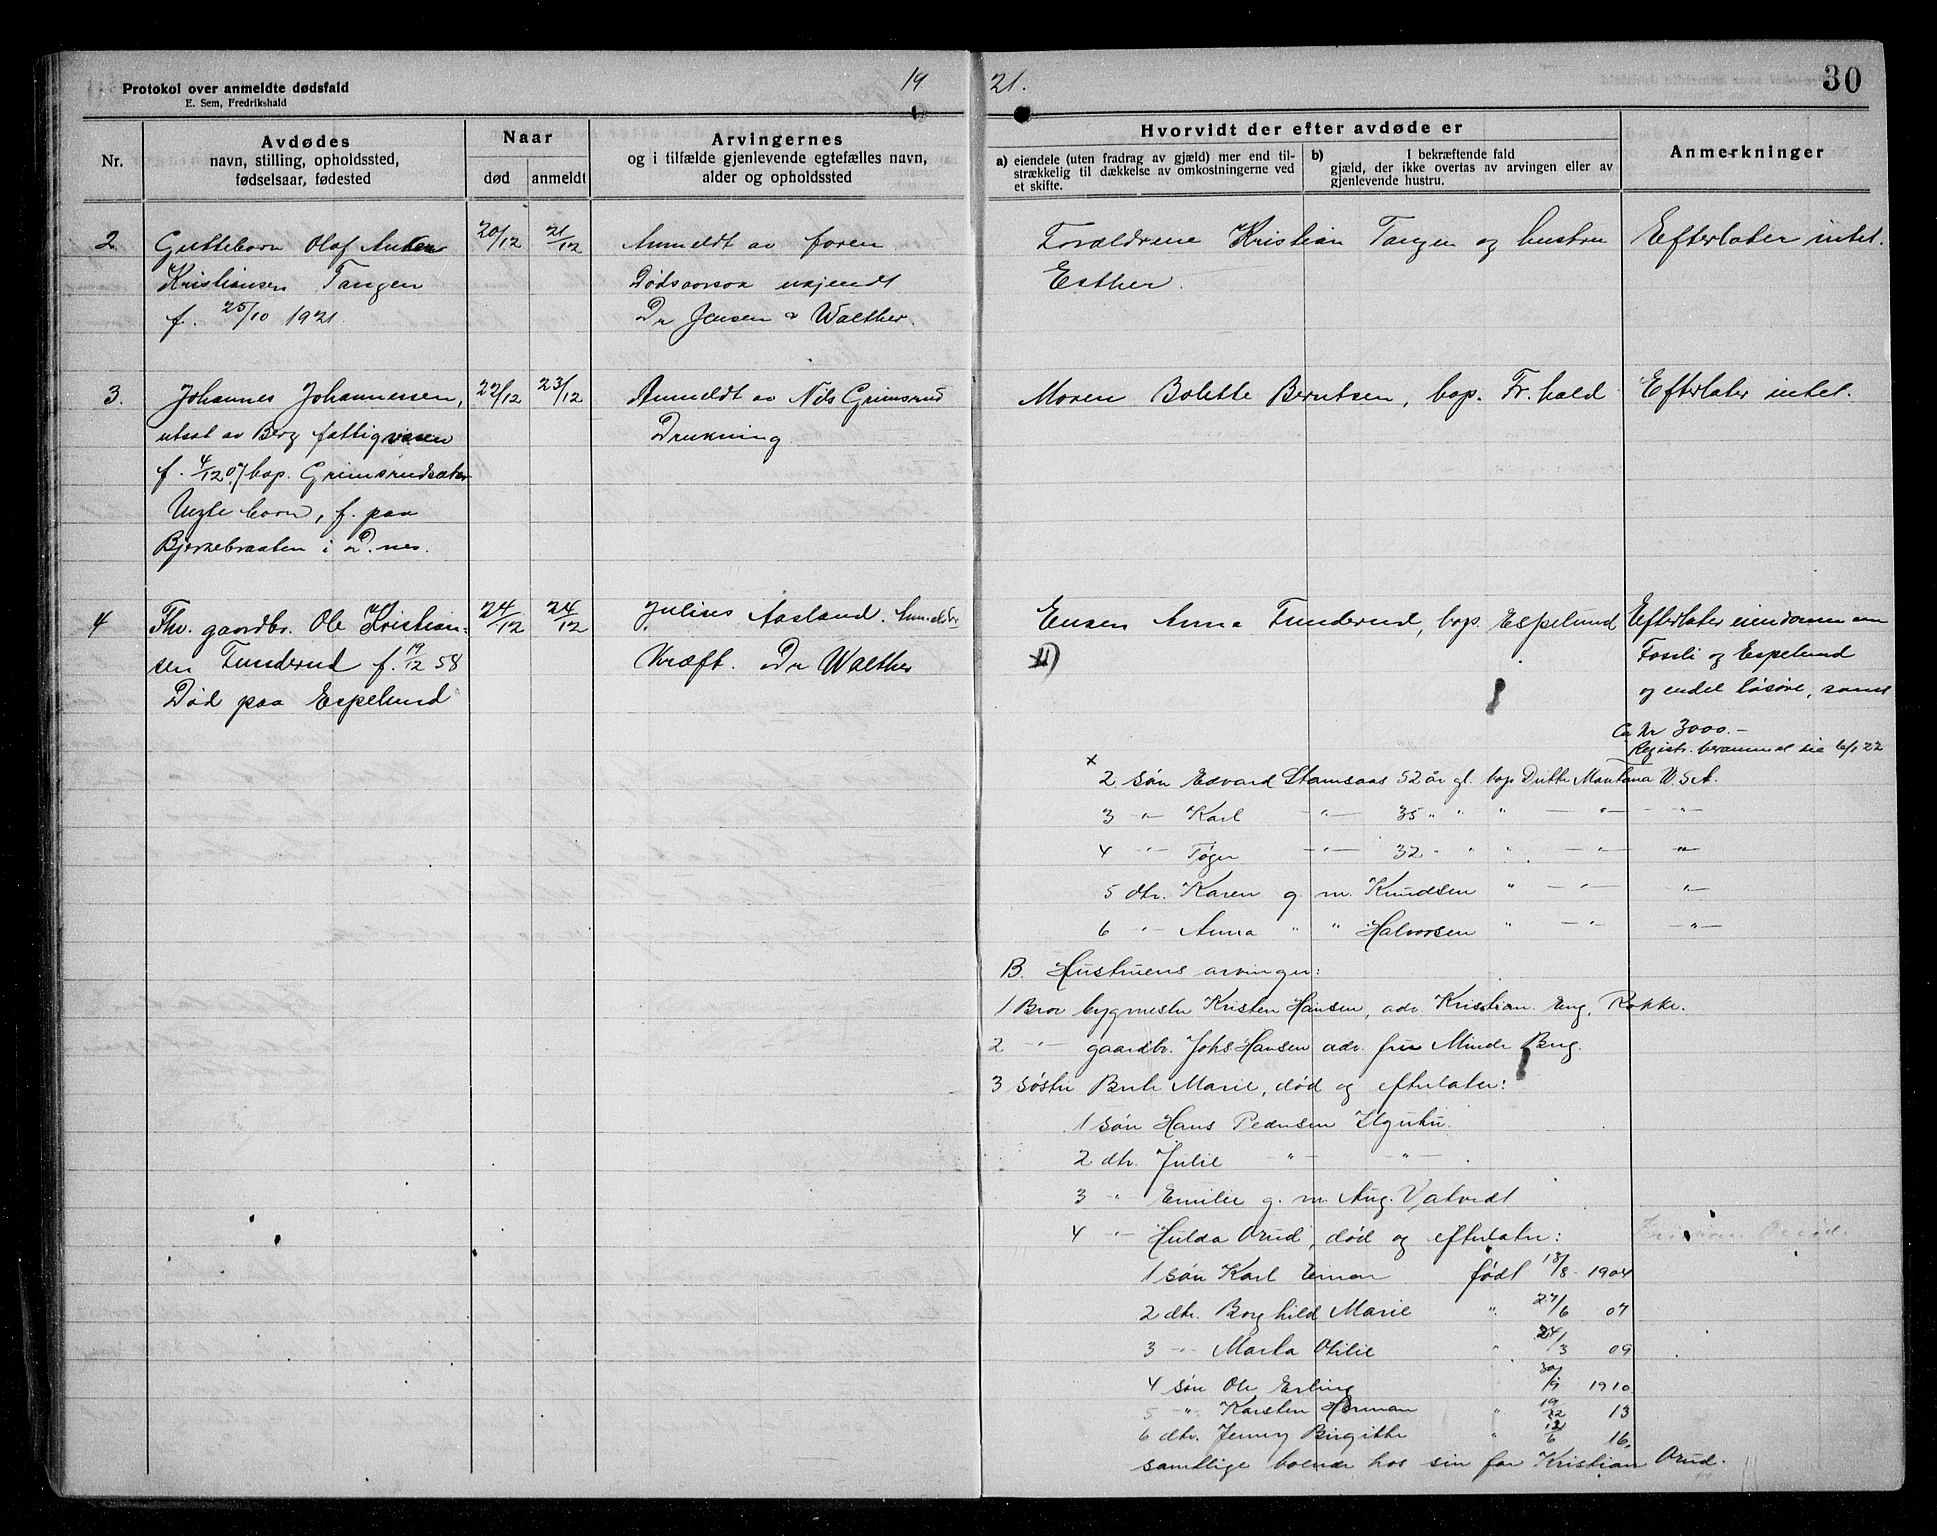 Protokol over anmeldte dødsfald
E. Sem, Fredrikshald
19 21.
30
Nr.
Avdødes
navn, stilling, opholdssted,
fødselsaar, fødested
Naar
død
anmeldt
Arvingernes
og i tilfælde gjenlevende egtefælles navn,
alder og opholdssted
Hvorvidt der efter avdøde er
a) eiendele (uten fradrag av gjæld) mer end til-
strækkelig til dækkelse av omkostningerne ved
et skifte.
b) I bekræftende fald
gjæld, der ikke overtas av arvingen eller av
gjenlevende hustru.
Anmerkninger
2
Guttebarn Olaf Anton
Kristiansen Tangen
f. 25/10 1921.
20/12
21/12
Anmeldt av faren
Dødsaarsak ukjendt
Dr Jensen & Walther.
Forældrene Kristian Tangen og hustru
Esther.
Efterlater intet.
3.
Johannes Johannessen,
utsat av Berg fattigvæsen
f. 4/12 07 bop. Grimsrudsæter
Uegte barn, f. paa
Bjerkebraaten i Id.nes.
22/12
23/12
Anmeldt av Nils Grimsrud
Drukning
Moren Bolette Berntsen, bop. Fr.hald
Efterlater intet.
4
Fhv. gaardbr. Ole Kristian-
sen Tunderud f. 19/12 58
Død paa Espelund
24/12
24/12
Julius Aasland.
Kræft. Dr Walther
Enken Anna Tunderud, bop. Espelund
Efterlater eiendommen
Fossli og Espelund
og endel løsøre, samt
Ca kr 3000.-
x
2 søn Edvard Stamsaas 52 år gl. bop Butte Montana U.S.A.
3 -"- Karl -"- 35 " " " -"- -"-
4 -"- Tøger -"- 32 " " " -"- -"-
5 dtr. Karen g. m. Knudsen " -"- -"-
6 -"- Anna " " Halvorsen " -"- -"-
B. Hustruens arvinger:
1 Bror bygmester Kristen Hansen, adr. Kristian. Eng, Rokke.
2 -"- gaardbr. Johs Hansen adr. Minde Berg.
3 søster Berte Marie, død og efterlater:
1 søn Hans Pedersen
2 dtr. Julie -"- -"-
3 " Emilie g. m. Aug. Vatvedt
4 -"- Hulda Orud, død og efterlater:
1 søn Karl Einar født 18/8 1904
2 dtr. Borghild Marie " 27/6 07
3 -"- Marta Otilie " 24/3 09
4 søn Ole Erling 30/9 1910
5 -"- Karsten Herman " 13
6 dtr. Jenny Birgitte " 16,
samtlige boende hos sin far Kristian Orud.